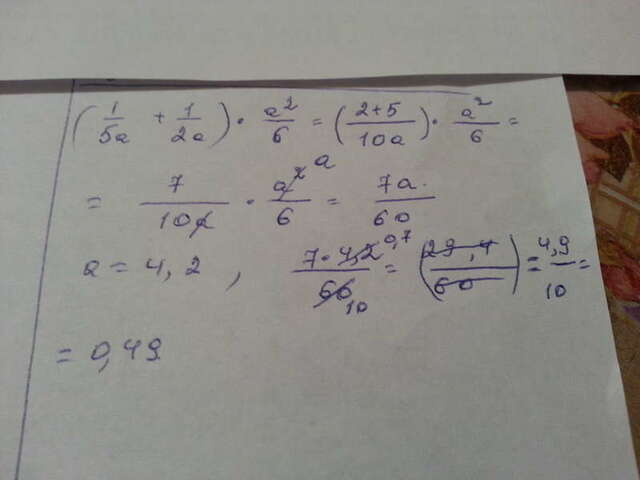 (1/5a + 1/2a) · a²/6 = (2+5/10a) · a²/6 =
= 7/10a · a²/6 a = 7a/60
a = 4,2 , 7·4,2 0,7/60 10 = (29,4/60) = 4,9/10 =
= 0,49